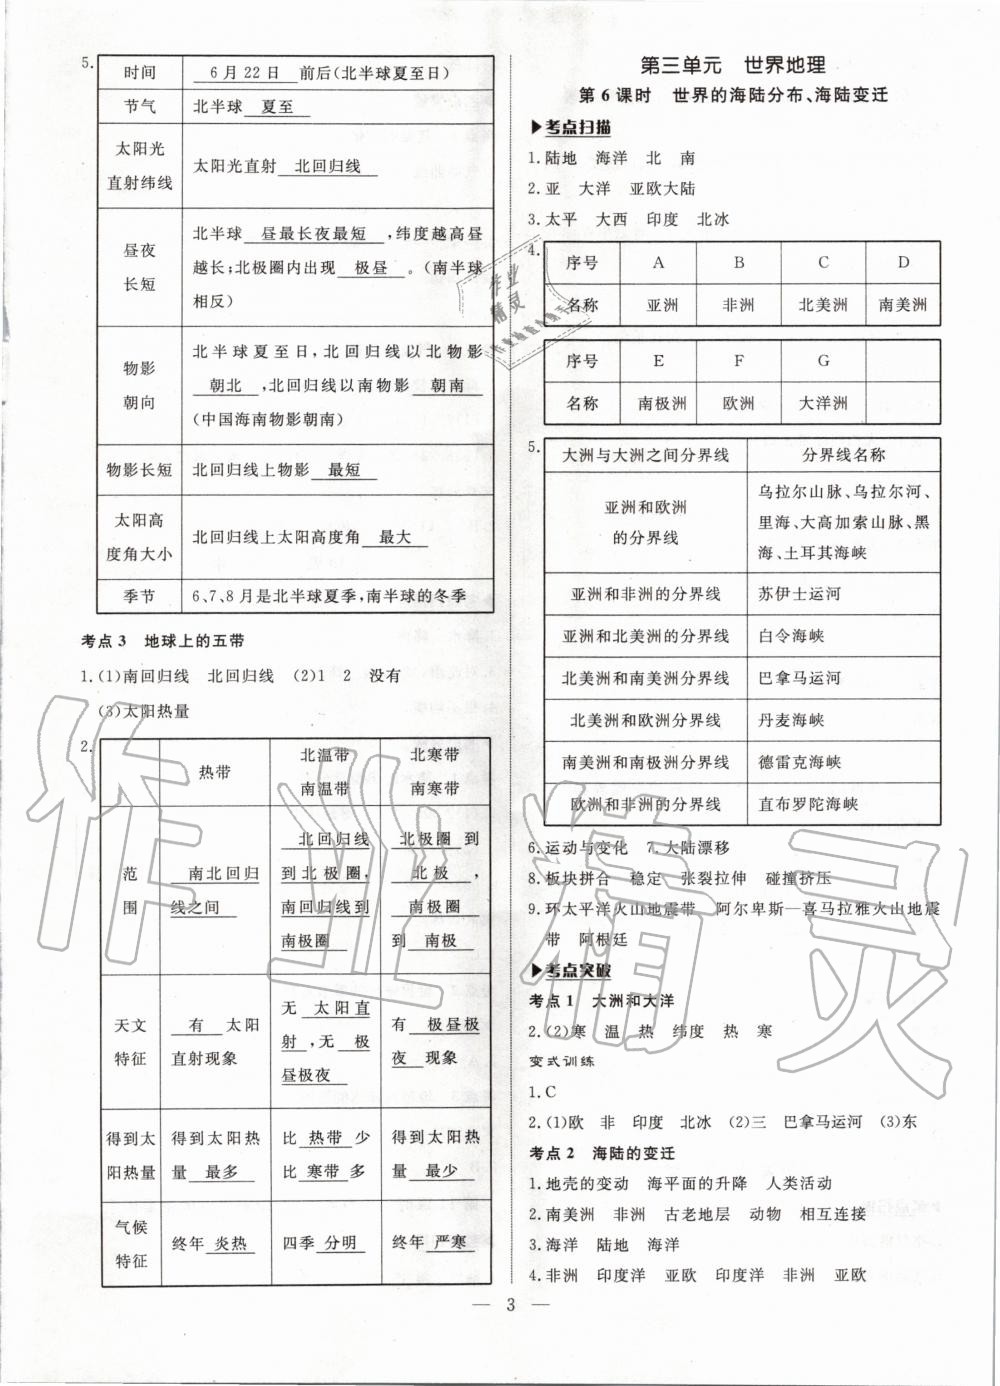 5.
时间 6月22日 前后(北半球夏至日)
节气 北半球 夏至
太阳光
直射纬线 太阳光直射 北回归线
昼夜
长短
北半球 昼最长夜最短 ,纬度越高昼
越长;北极圈内出现 极昼 。(南半球
相反)
物影
朝向
北半球夏至日,北回归线以北物影
朝北 ,北回归线以南物影 朝南
(中国海南物影朝南)
物影长短 北回归线上物影 最短
太阳高
度角大小 北回归线上太阳高度角 最大
季节 6、7、8月是北半球夏季,南半球的冬季
考点3 地球上的五带
1.(1)南回归线 北回归线 (2)1 2 没有
(3)太阳热量
2.
热带 北温带 南温带 北寒带 南寒带
范
围
南北回归
线之间
北回归线
到北极圈,
南回归线到
南极圈
北极圈 到
北极 ,
南极圈
到 南极
天文
特征
有 太阳
直射现象
无 太阳直
射 ,无 极
昼极夜
有 极昼极
夜 现象
得到太
阳热量
得到太阳热
量 最多
比 热带 少
比 寒带 多
得到太阳热
量 最少
气候
特征
终年 炎热 四季 分明 终年 严寒
第三单元 世界地理
第6课时 世界的海陆分布、海陆变迁
考点扫描
1.陆地 海洋 北 南
2.亚 大洋 亚欧大陆
3.太平 大西 印度 北冰
4.
序号 A B C D
名称 亚洲 非洲 北美洲 南美洲
序号 E F G
名称 南极洲 欧洲 大洋洲
5.
大洲与大洲之间分界线 分界线名称
亚洲和欧洲
的分界线
乌拉尔山脉、乌拉尔河、
里海、大高加索山脉、黑
海、土耳其海峡
亚洲和非洲的分界线 苏伊士运河
亚洲和北美洲的分界线 白令海峡
北美洲和南美洲的分界线 巴拿马运河
北美洲和欧洲的分界线 丹麦海峡
南美洲和南极洲的分界线 德雷克海峡
欧洲和非洲的分界线 直布罗陀海峡
6.运动与变化 7.大陆漂移
8.板块拼合 稳定 张裂拉伸 碰撞挤压
9.环太平洋火山地震带 阿尔卑斯—喜马拉雅火山地震
带 阿根廷
考点突破
考点1 大洲和大洋
2.(2)寒 温 热 纬度 热 寒
变式训练
1.C
2.(1)欧 非 印度 北冰 (2)三 巴拿马运河 (3)东
考点2 海陆的变迁
1.地壳的变动 海平面的升降 人类活动
2.南美洲 非洲 古老地层 动物 相互连接
3.海洋 陆地 海洋
4.非洲 印度洋 亚欧 印度洋 非洲 亚欧
— 3 —
作业精灵
作业
精灵